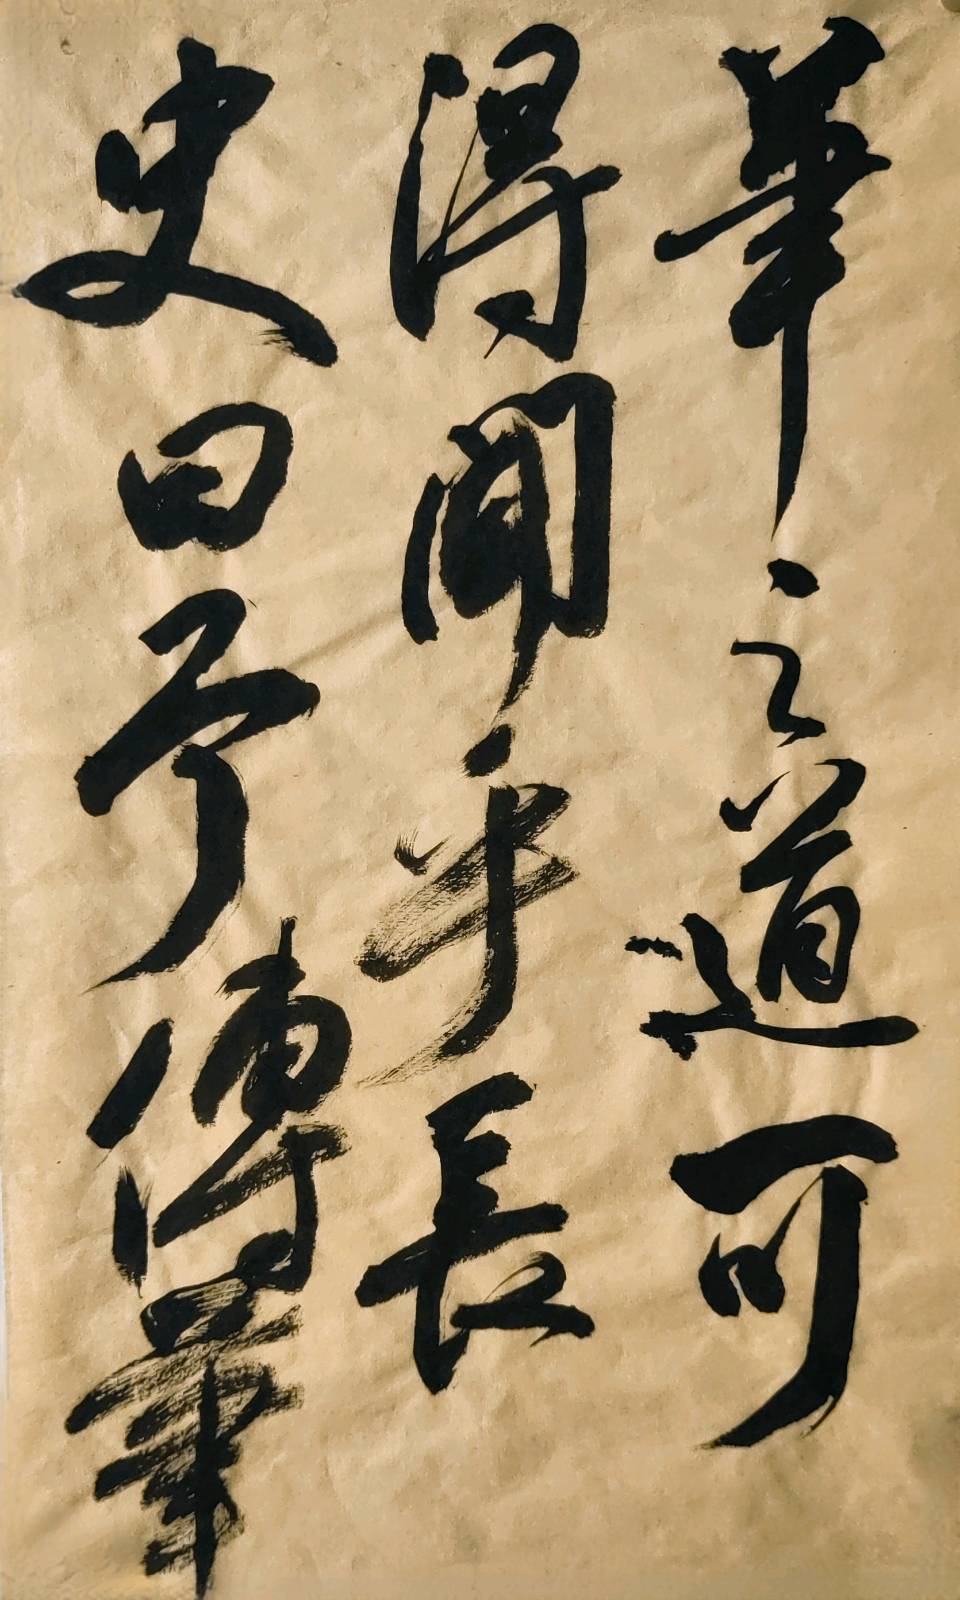 筆之道可
得聞乎長
史曰予傳筆